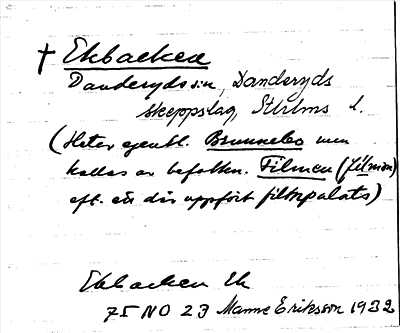 † Ekbacken
Danderyds sn, Danderyds
skeppslag, Sthlms l.
(Heter egentl. Brunnebo men
kallas av befolkn. Filmen (filmən)
eft. en där uppfört filmpalats)
Ekbacken Ek
75 NO 23 Manne Eriksson 1932